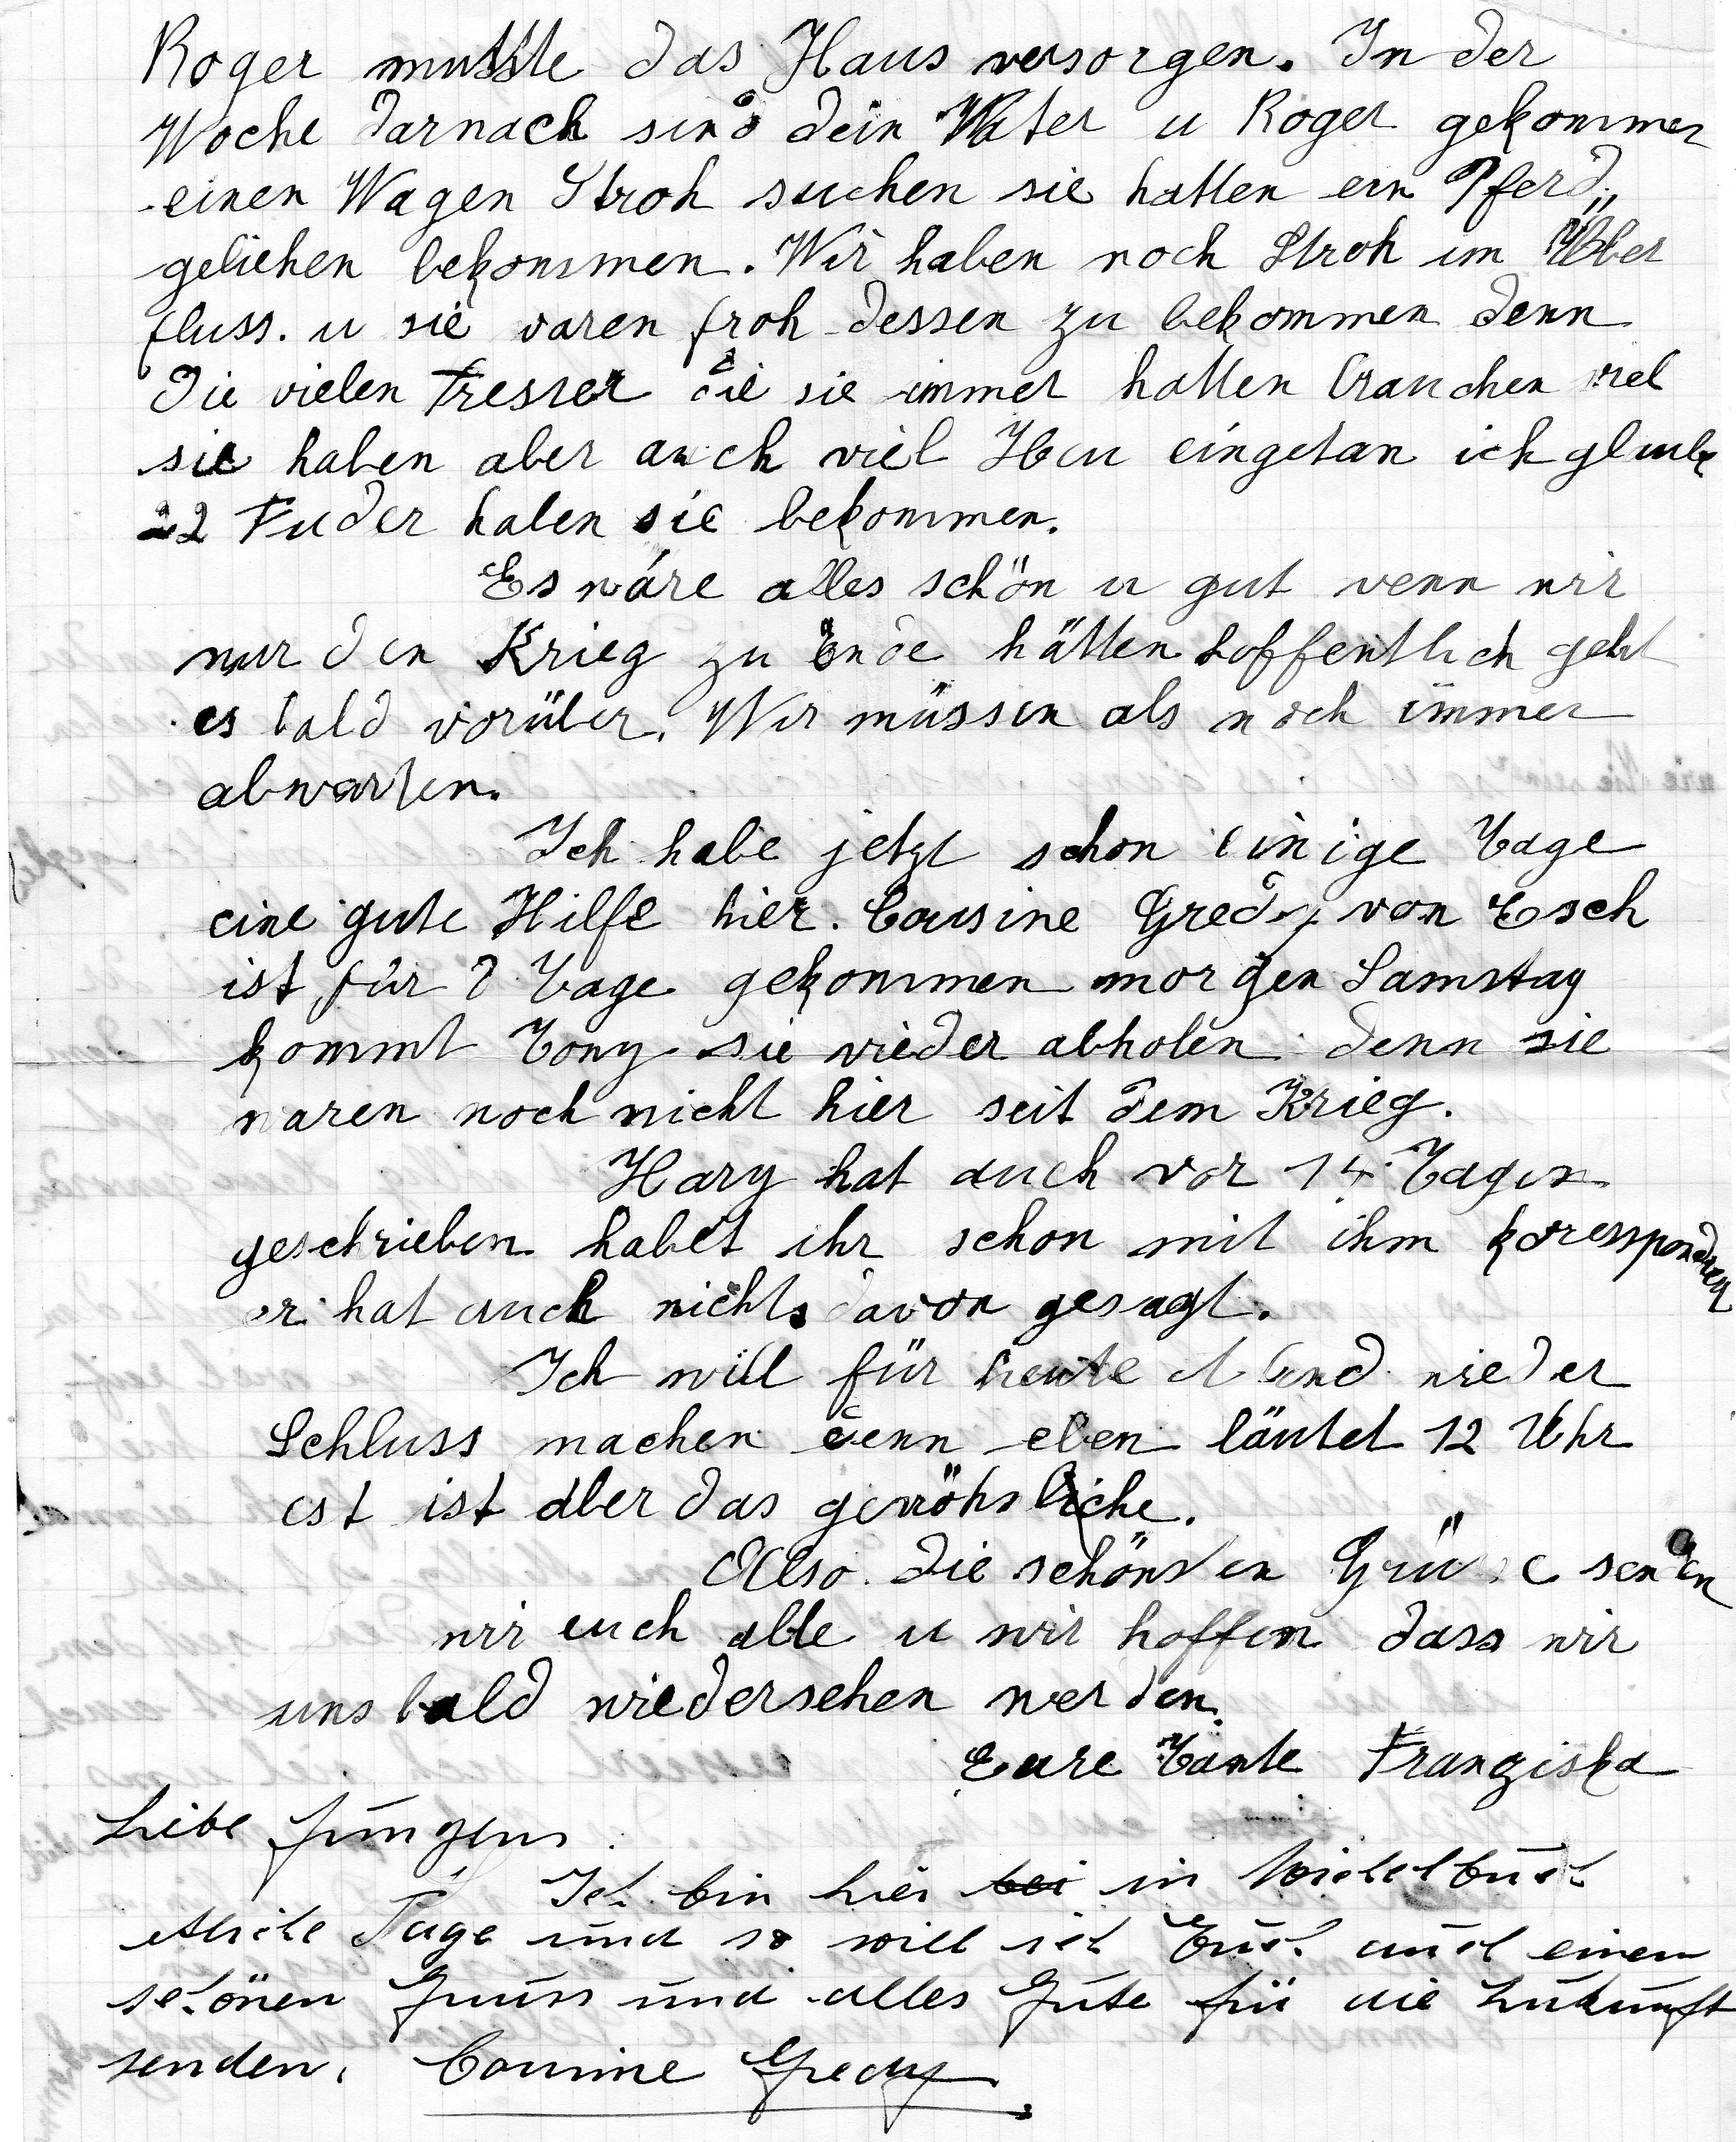 Roger musste das Haus versorgen. In der
Woche darnach sind dein Vater u Roger gekommen
einen Wagen Stroh suchen sie hatten ein Pferd,,
geliehen bekommen. Wir haben noch Stroh im Über
fluss. u sie waren froh dessen zu bekommen denn
die vielen Fresser die sie immer hatten brauchen viel
sie haben aber auch viel Heu eingetan ich glaube
22 Fuder haben sie bekommen.
Es wäre alles schön u gut wenn wir
nur den Krieg zu Ende hätten hoffentlich geht
es bald vorüber. Wir müssen als noch immer
abwarten.
Ich habe jetzt schon einige Tage
eine gute Hilfe hier. Cousine Gredy von Esch
ist für 8 Tage gekommen morgen Samstag
kommt Tony sie wieder abholen denn sie
waren noch nicht hier seit dem Krieg.
Hary hat auch vor 14 Tagen
geschrieben habet ihr schon mit ihm
er hat auch nichts davon gesagt.
Ich will für heute Abend wieder
Schluss machen denn eben läutet 12 Uhr
est ist aber das gewöhnliche.
Also die schönsten Grüsse senden
wir euch alle u wir hoffen dass wir
uns bald wiedersehen werden.
Eure Tante Franziska
Liebe Jungens
Ich bin hier bei in
etliche Tage und so will ich Euch auch einen
schönen Gruss und alles Gute für die Zukunft
senden. Cousine Gredy